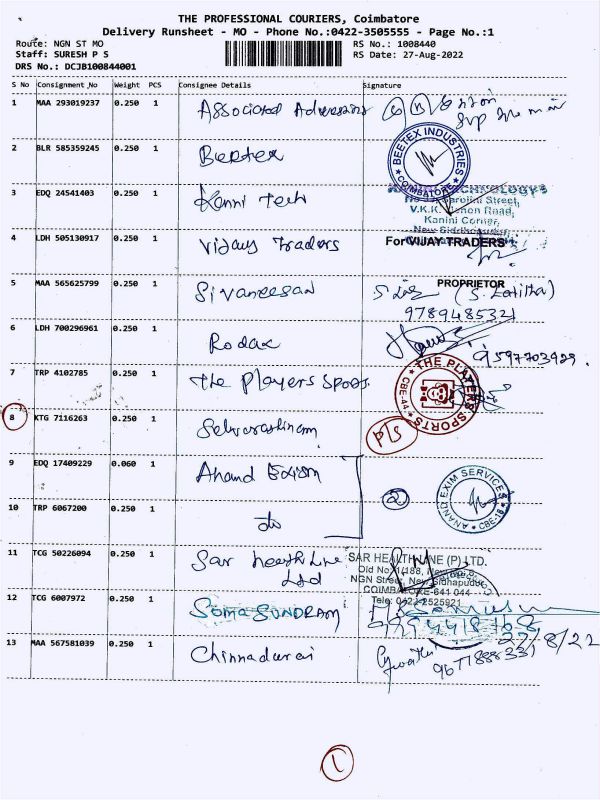 THE PROFESSIONAL COURIERS, Coimbatore
Delivery Runsheet - MO - Phone No.:0422-3505555 - Page No.:1
Route: NGN ST MO
RS No.: 1008440
Staff: SURESH P S
RS Date: 27-Aug-2022
DRS No.: DCJB100844001
S No Consignment No Weight PCS Consignee Details Signature
1 MAA 293019237 0.250 1 Associated
2 BLR 585359245 0.250 1 Beetex
BEETEX INDUSTRIES
COIMBATORE
3 EDQ 24541403 0.250 1 Kanni Tech
Sarojini Street,
V.K.K. Menon Road,
Kanini Corner,
New Siddhapudur,
4 LDH 505130917 0.250 1 Vijay Traders For VIJAY TRADERS
PROPRIETOR
5 MAA 565625799 0.250 1 Sivaneesan (S. Lalitha)
9789485321
6 LDH 700296961 0.250 1 Rodax
9597703929.
7 TRP 4102785 0.250 1 The Players Sports
THE PLAYERS SPORTS
CBE-44
8 KTG 7116263 0.250 1 Selvarathinam
9 EDQ 17409229 0.060 1 Anand Exism 2
ANAND EXIM SERVICES
CBE-18
10 TRP 6067200 0.250 1 do
11 TCG 50226094 0.250 1 Sar Health Line
Ltd
SAR HEALTHLINE (P) LTD.
NGN Street, New Sidhapudur,
COIMBATORE-641 044
Tele: 0422-2525921
12 TCG 6007972 0.250 1 Soma SUNDRAM
27/8/22
13 MAA 567581039 0.250 1 Chinnadurai
9677888331
1